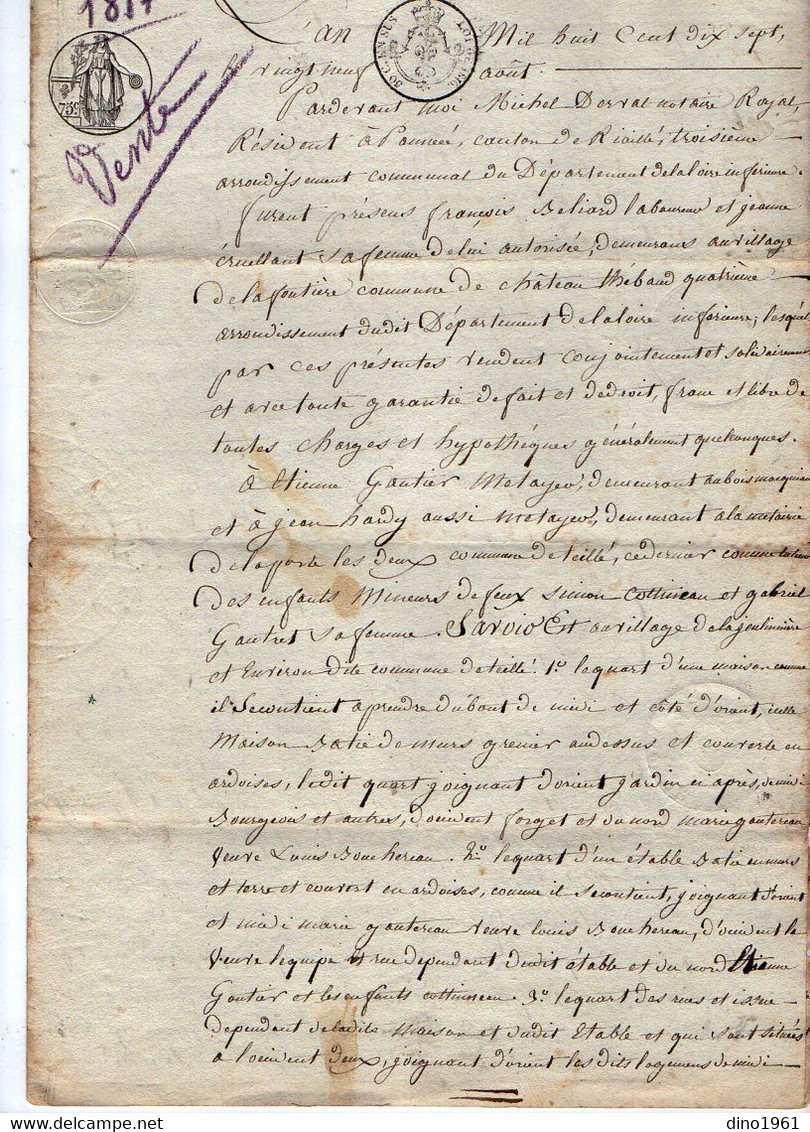 1817
Vente
75c.
50 C. EN SUS
LOI DE 1816
L'an Mil huit Cent dix sept,
le vingt neuf août.
Pardevant moi Michel Derval notaire Royal,
Résident à Pannecé, canton de Riaillé, troisième
arrondissement communal du Département dela loire inférieure.
furent présens françois Beliard laboureur et jeanne
cruellant sa femme delui autorisée, demeurans au village
dela foutière commune de château thébaud quatrième
arrondissement dudit Département delaloire inférieure; lesquels
par ces présentes vendent conjointement et solidairement
et avec toute garantie defait et dedroit, franc et libre de
toutes charges et hypothéques généralement quelconques.
à Etienne Gautier Metayer, demeurant aubois
et à jean hardy aussi métayer, demeurant à la métairie
dela porte les deux commune deteillé, cedernier comme tuteur
des enfants Mineurs defeux simon cottineau et gabriel
Gautret sa femme. Savoir Est au village de lajoulinnière
et Environ dite commune deteillé. 1o lequart d'une maison comme
il Secontient aprendre dubout de midi et côté d'orient, icelle
Maison Batie demurs grenier audessus et couverte en
ardoises, ledit quart joignant d'orient jardin ci après, de midi
Bourgeois et autres, d'occident forget et du nord marie gautereau
Veuve Louis Bouchereau. 2o lequart d'un étable Batie en murs
et terre et couvert en ardoises, comme il secontient, joignant d'orient
et midi marie gautereau veuve louis Bouchereau, d'occident la
Veuve lequipe et rue dependant dudit étable et du nord Etienne
Gautier et les enfants cottineau. 3o lequart des rues et issue
dependant deladite maison et dudit Etable et qui sont situées
a l'occident deux, joignant d'orient les dits logemens de midi
dino1961